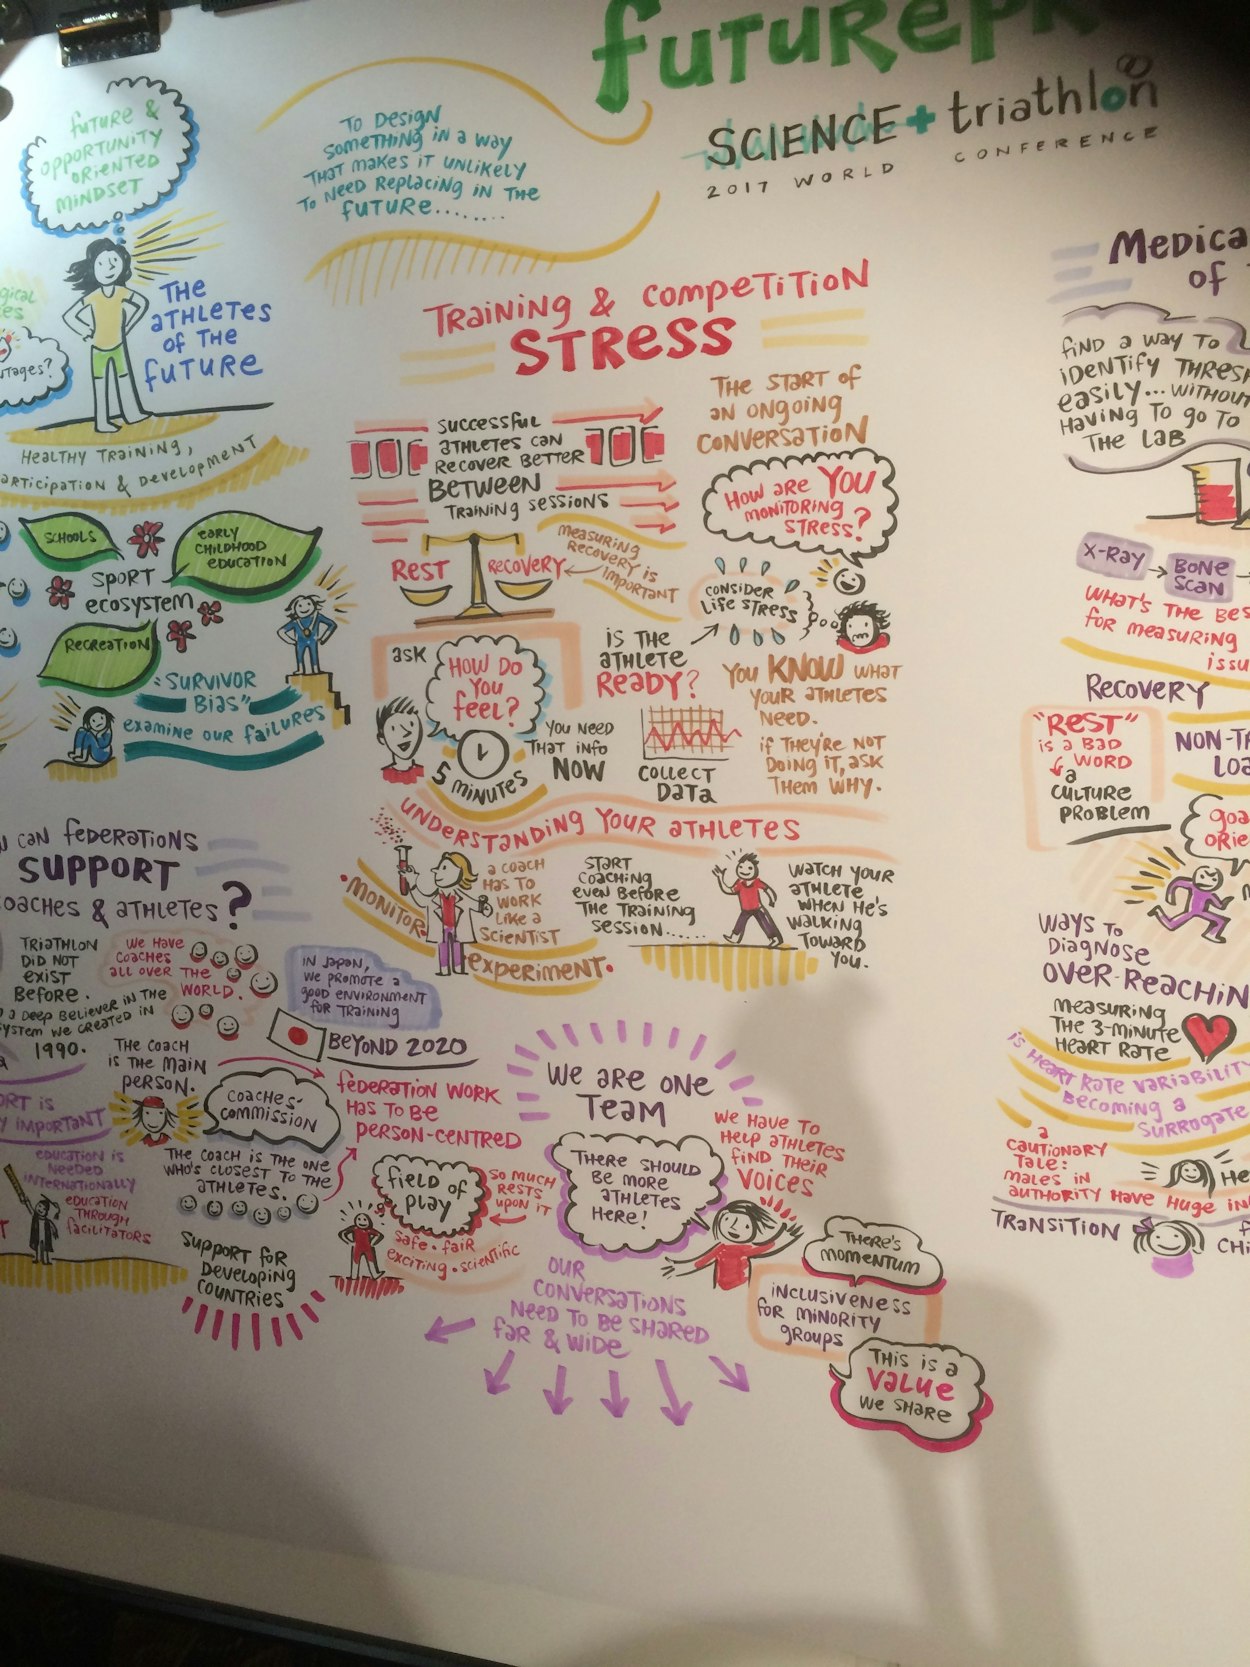 future &
opportunity
oriented
mindset
To Design
something in a way
that makes it unlikely
to need replacing in the
future........
SCIENCE + triathlon
2017 WORLD CONFERENCE
THE
athletes
of the
future
Healthy Training,
& Development
Schools
early
childhood
education
Sport
ecosystem
Recreation
"Survivor
Bias"
examine our failures
Training & competition
STRESS
Successful
athletes can
recover better
Between
Training sessions
The start of
an ongoing
conversation
How are YOU
monitoring
stress?
Rest
Recovery
Measuring
recovery is
important
consider
life stress
Is the
athlete
Ready?
ask
How do
you
feel?
5 minutes
You need
that info
NOW
collect
data
You KNOW what
your athletes
need.
if they're not
doing it, ask
them why.
Understanding your athletes
•Monitor
experiment•
a coach
has to
work
like a
scientist
Start
coaching
even before
the training
session......
Watch your
athlete
when he's
walking
toward
you.
can federations
Support
coaches & athletes?
Triathlon
did not
exist
before.
a deep believer in the
system we created in
1990.
We have
coaches
all over the
world.
In Japan,
we promote a
good environment
for training
Beyond 2020
The coach
is the main
person.
Coaches'
commission
The coach is the one
who's closest to the
athletes.
federation work
has to be
person-centred
education is
needed
internationally
education
through
facilitators
Support for
developing
countries
field of
play
So much
rests
upon it
safe • fair
exciting • scientific
We are one
Team
There should
be more
athletes
here!
We have to
help athletes
find their
voices
Our
conversations
need to be shared
far & wide
There's
momentum
inclusiveness
for minority
groups
This is a
value
we share
of
find a way to
identify
easily... without
having to go to
the lab
X-Ray
Bone
Scan
What's the
for measuring
Recovery
"Rest"
is a bad
word
a
culture
problem
Ways to
diagnose
Measuring
the 3-minute
heart rate
is heart rate variability
becoming a
a
cautionary
tale:
males in
authority have huge
Transition